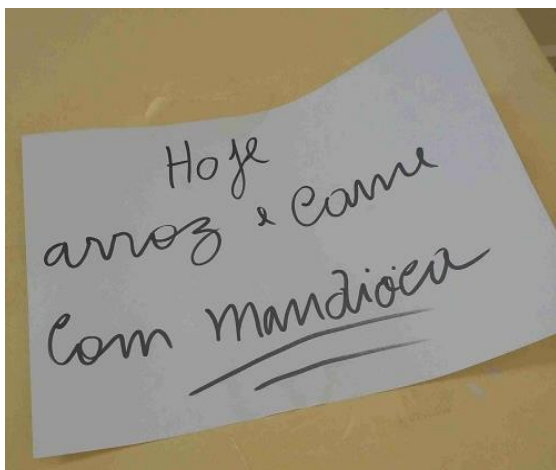 Hoje
arroz e carne
com mandioca